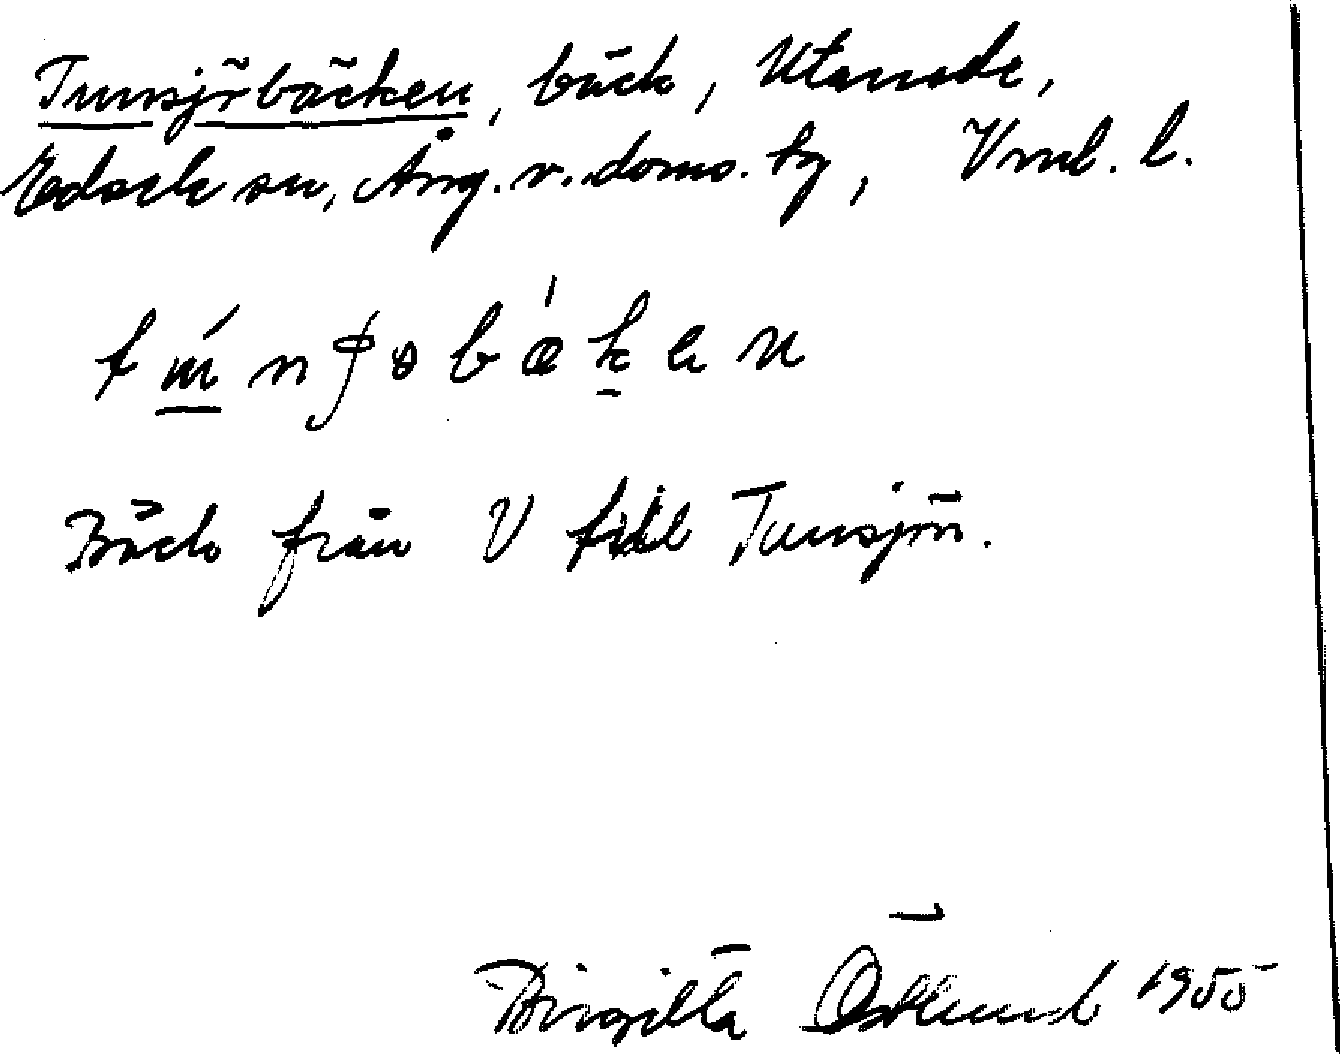 Tunsjöbäcken, bäck, Utanede,
Edsele sn, Ång. v. doms. tg, Vnrl. l.
Bäck från V till Tunsjön.
Birgitta Östlund 1955